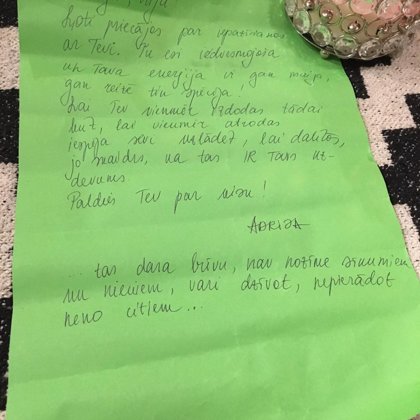 Ļoti priecājos par iepazīšanos
ar Tevi. Tu esi iedvesmojoša
un Tava enerģija ir gan maiga,
gan reizē tik spēcīga!
Lai Tev vienmēr izdodas tādai
būt, lai vienmēr atrodas
iespēja sevi uzlādēt, lai dalītos,
jo skaidrs, ka tas IR Tavs uz-
devums
Paldies Tev par visu!
ADRIJA
... tas dara brīvu, nav nozīme
un nieciem, vari dzīvot, nepierādot
neko citiem...